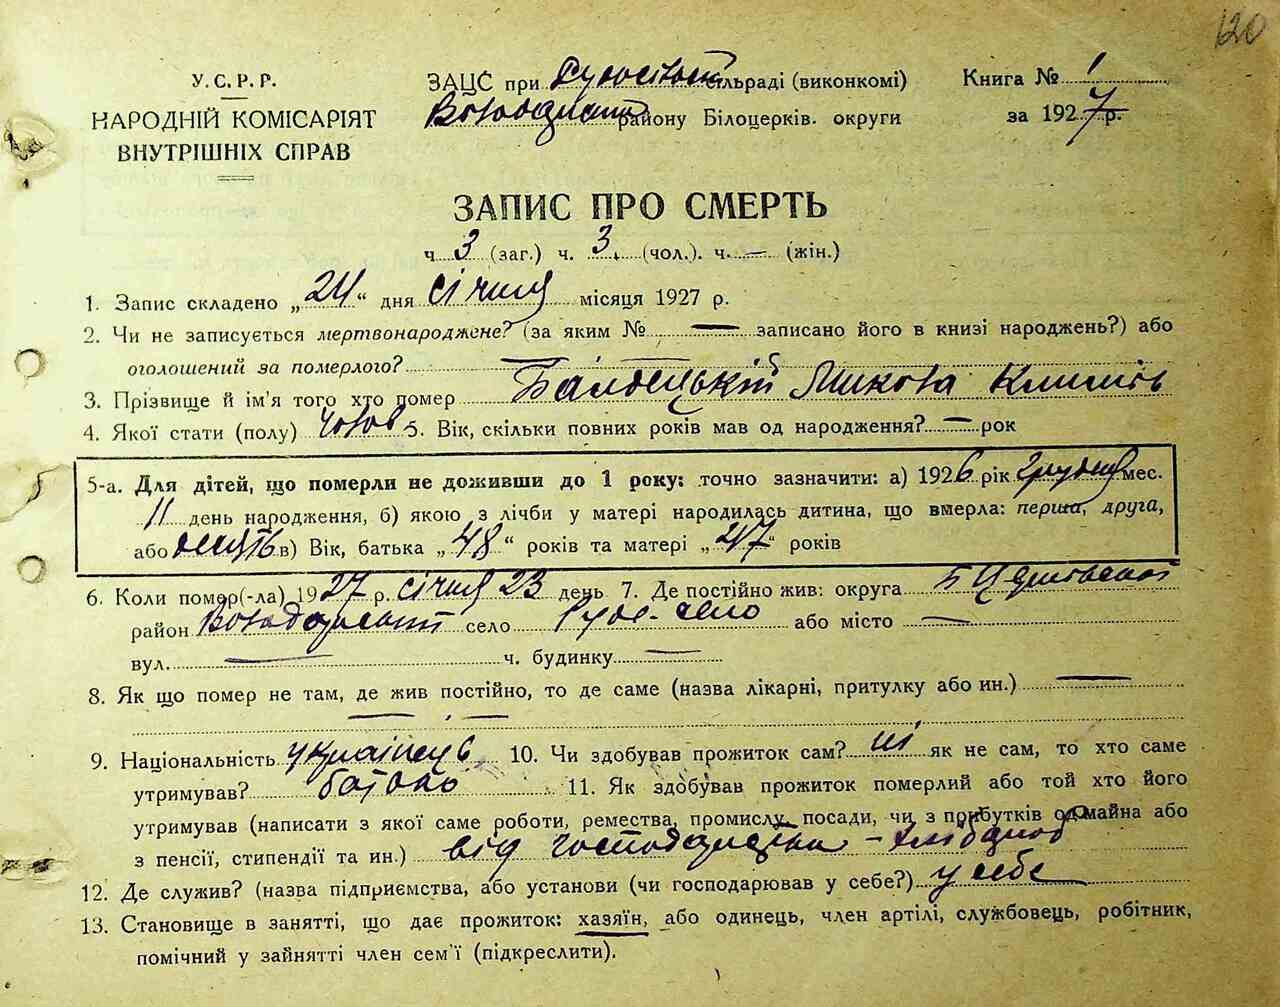 120
У.С.Р.Р.
НАРОДНІЙ КОМІСАРІЯТ
ВНУТРІШНІХ СПРАВ
ЗАЦС при сільраді (виконкомі)
району Білоцерків. округи
Книга № 1
за 1927 р.
ЗАПИС ПРО СМЕРТЬ
ч. 3 (заг.) ч. 3 (чол.). ч. — (жін.)
1. Запис складено „24“ дня січня місяця 1927 р.
2. Чи не записується мертвонароджене? (за яким № — записано його в книзі народжень?) або
оголошений за померлого? — —
3. Прізвище й ім'я того хто помер Микола Климів
4. Якої стати (полу) чолов 5. Вік, скільки повних років мав од народження? — рок
5-а. Для дітей, що померли не доживши до 1 року: точно зазначити: а) 1926 рік грудня мес.
11 день народження, б) якою з лічби у матері народилась дитина, що вмерла: перша, друга,
або в) Вік, батька „48“ років та матері „47“ років
6. Коли помер(-ла) 1927 р. січня 23 день 7. Де постійно жив: округа Б Церковської
район Володарськ село Руде-село або місто —
вул. — ч. будинку —
8. Як що помер не там, де жив постійно, то де саме (назва лікарні, притулку або ин.) —
— —
9. Національність українець 10. Чи здобував прожиток сам? ні як не сам, то хто саме
утримував? батько 11. Як здобував прожиток померлий або той хто його
утримував (написати з якої саме роботи, ремества, промислу, посади, чи з прибутків од майна або
з пенсії, стипендії та ин.) від господарства - хлібороб
12. Де служив? (назва підприємства, або установи (чи господарював у себе?) у себе
13. Становище в занятті, що дає прожиток: хазяїн, або одинець, член артілі, службовець, робітник,
помічний у зайнятті член сем'ї (підкреслити).